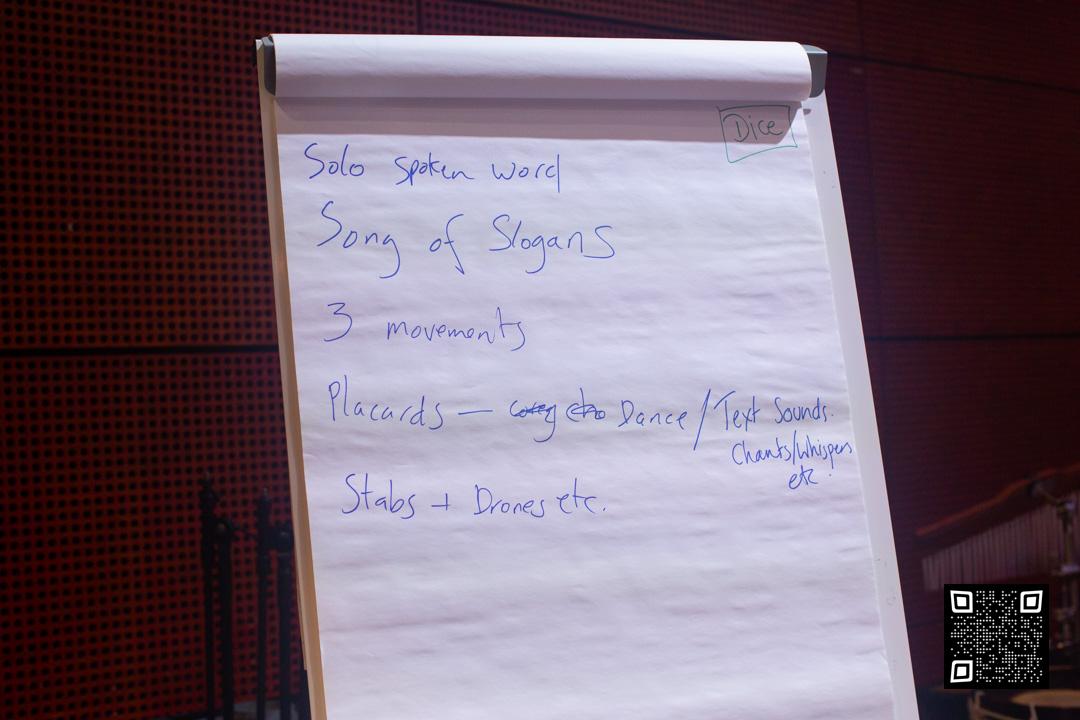 Dice
Solo spoken word
Song of Slogans
3 movements
Placards — Dance / Text Sounds.
Chants/Whispers
etc.
Stabs + Drones etc.